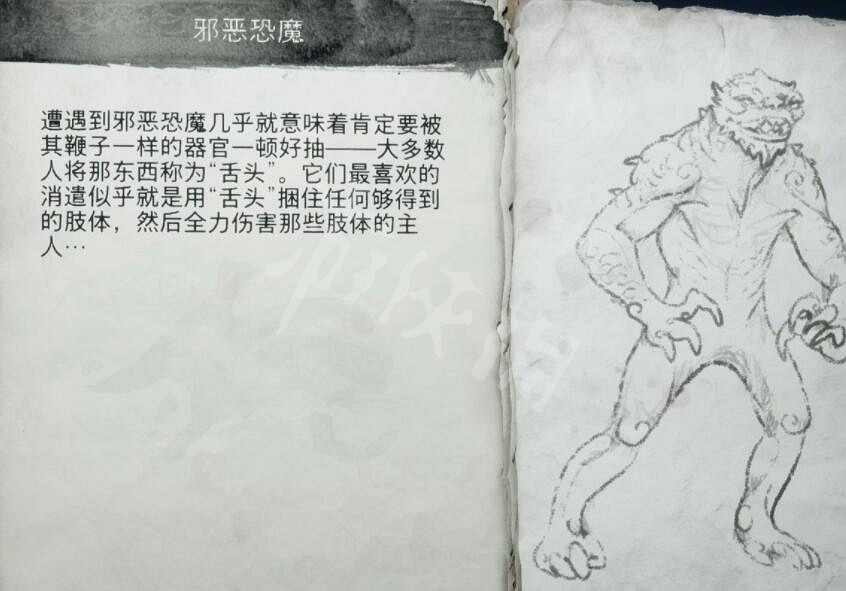 邪恶恐魔
遭遇到邪恶恐魔几乎就意味着肯定要被
其鞭子一样的器官一顿好抽——大多数
人将那东西称为“舌头”。它们最喜欢的
消遣似乎就是用“舌头”捆住任何够得到
的肢体，然后全力伤害那些肢体的主
人…